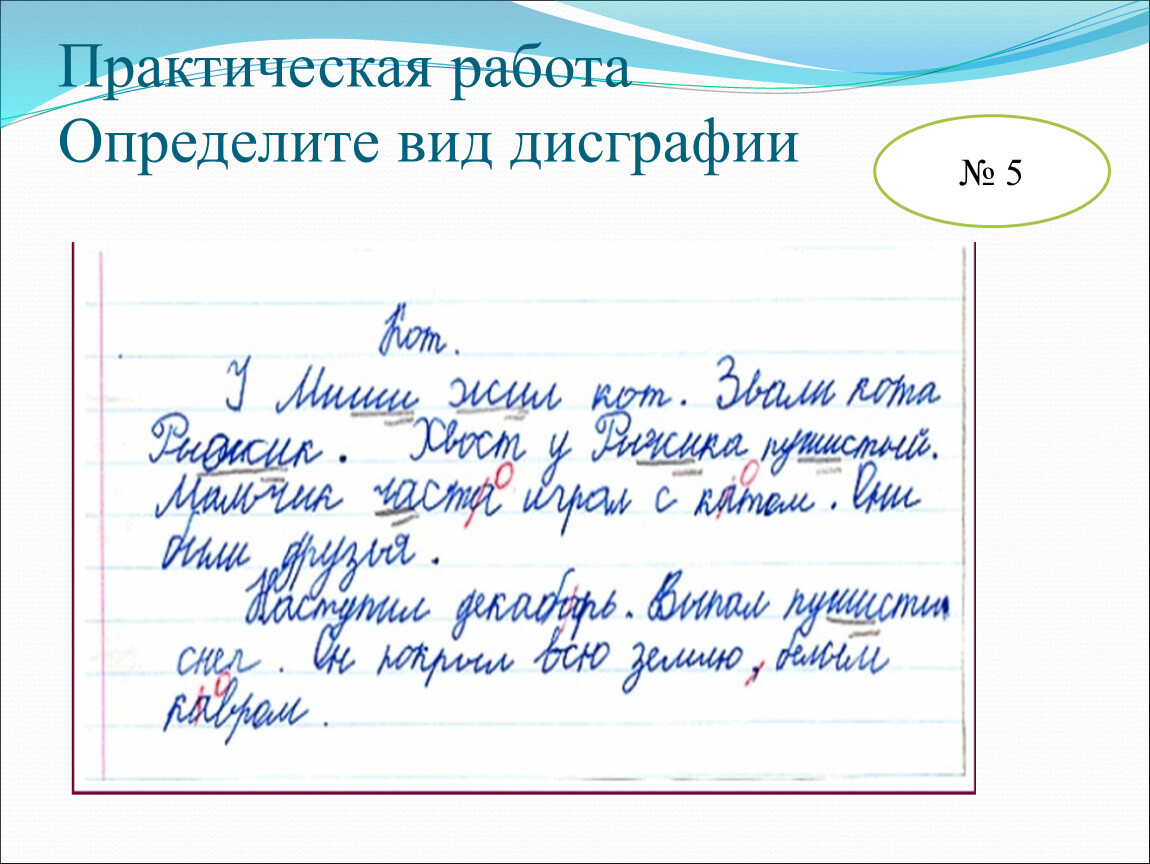 Практическая работа
Определите вид дисграфии
№ 5
Кот.
У Миши жил кот. Звали кота
Рыжик. Хвост у Рыжика пушистый.
Мальчик часта о играл с катом о. Они
были друзья.
Наступил декабарь. Выпал пушистый
снег. Он покрыл всю землю, белым
кавром о.